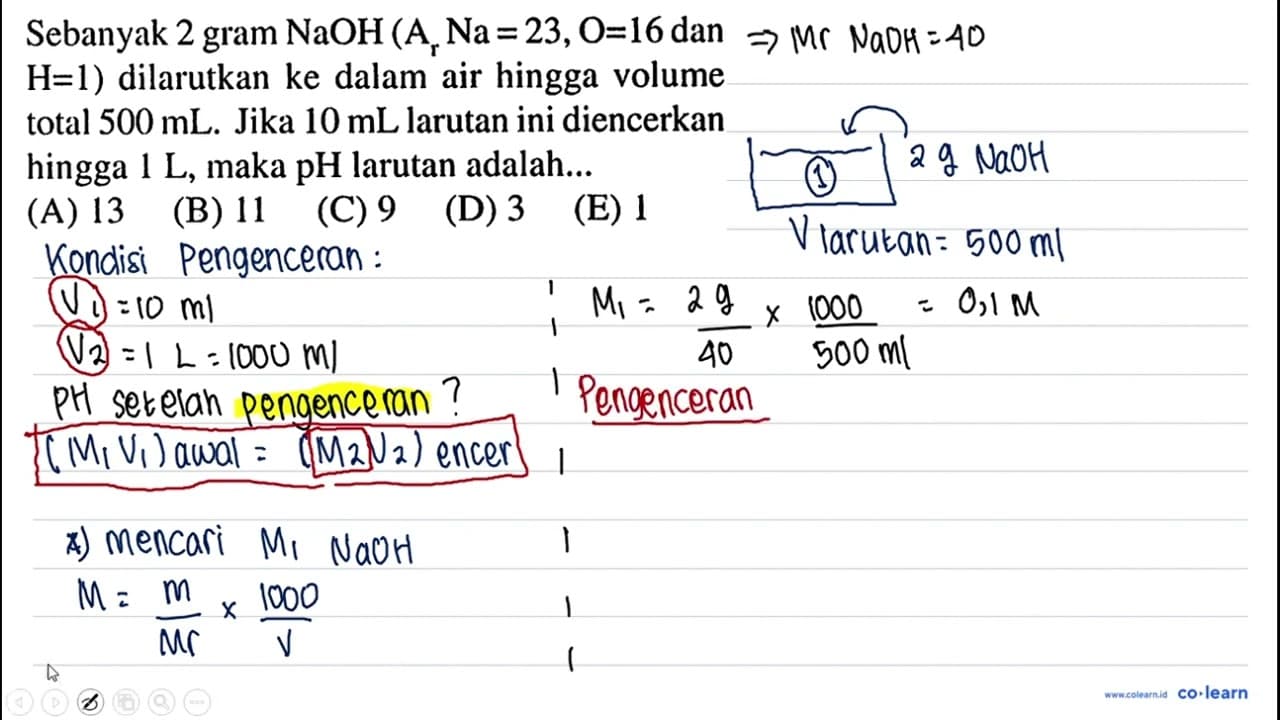 Sebanyak 2 gram NaOH (Ar Na = 23, O=16 dan
H=1) dilarutkan ke dalam air hingga volume
total 500 mL. Jika 10 mL larutan ini diencerkan
hingga 1 L, maka pH larutan adalah...
(A) 13 (B) 11 (C) 9 (D) 3 (E) 1
⇒ Mr NaOH = 40
① 2 g NaOH
V larutan = 500 ml
Kondisi Pengenceran :
V1 = 10 ml
V2 = 1 L = 1000 ml
PH setelah pengenceran ?
(M1 V1) awal = (M2 V2) encer
*) mencari M1 NaOH
M = m/Mr x 1000/V
M1 = 2 g/40 x 1000/500 ml = 0,1 M
Pengenceran
www.colearn.id co·learn